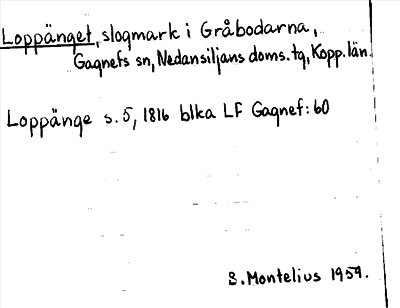 Loppänget, slogmark i Gråbodarna,
Gagnefs sn, Nedansiljans doms. tg, Kopp. län.
Loppänge s. 5, 1816 blka LF Gagnef: 60
S. Montelius 1959.